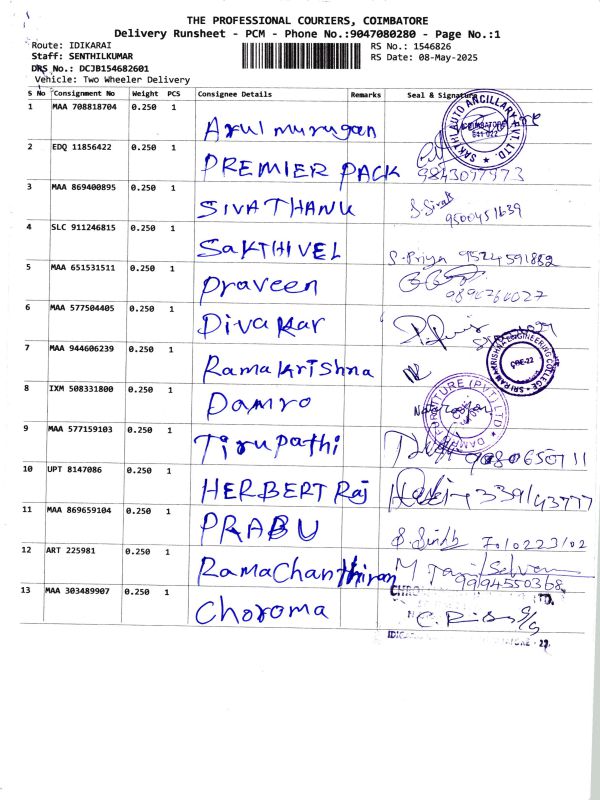 THE PROFESSIONAL COURIERS, COIMBATORE
Delivery Runsheet - PCM - Phone No.:9047080280 - Page No.:1
Route: IDIKARAI RS No.: 1546826
Staff: SENTHILKUMAR RS Date: 08-May-2025
DRS No.: DCJB154682601
Vehicle: Two Wheeler Delivery
S No Consignment No Weight PCS Consignee Details Remarks Seal & Signature
1 MAA 708818704 0.250 1 Arul murugan
SAKTHI AUTO ANCILLARY (P) LTD. COIMBATORE 641 022
2 EDQ 11856422 0.250 1 PREMIER PACK 9843077973
3 MAA 869400895 0.250 1 SIVATHANU S. Siva 9500451639
4 SLC 911246815 0.250 1 SAKTHIVEL S. Priya 9524591882
5 MAA 651531511 0.250 1 Praveen
6 MAA 577504405 0.250 1 Divakar
7 MAA 944606239 0.250 1 Ramakrishna
SRI RAMAKRISHNA ENGINEERING COLLEGE CBE-22
8 IXM 508331800 0.250 1 Damro Natarajan
FURNITURE (PVT) LTD DAMRO
9 MAA 577159103 0.250 1 Tirupathi 9080650711
10 UPT 8147086 0.250 1 HERBERT Raj
11 MAA 869659104 0.250 1 PRABU
12 ART 225981 0.250 1 RamaChanthiran M Tamil Selvan 9994550368
13 MAA 303489907 0.250 1 Choroma